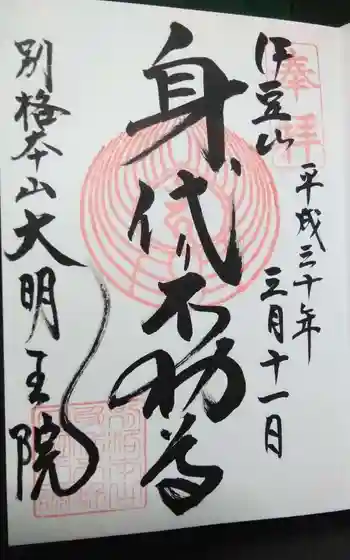 奉拝
伊豆山
平成三十年
三月十一日
身代り不動尊
別格本山大明王院